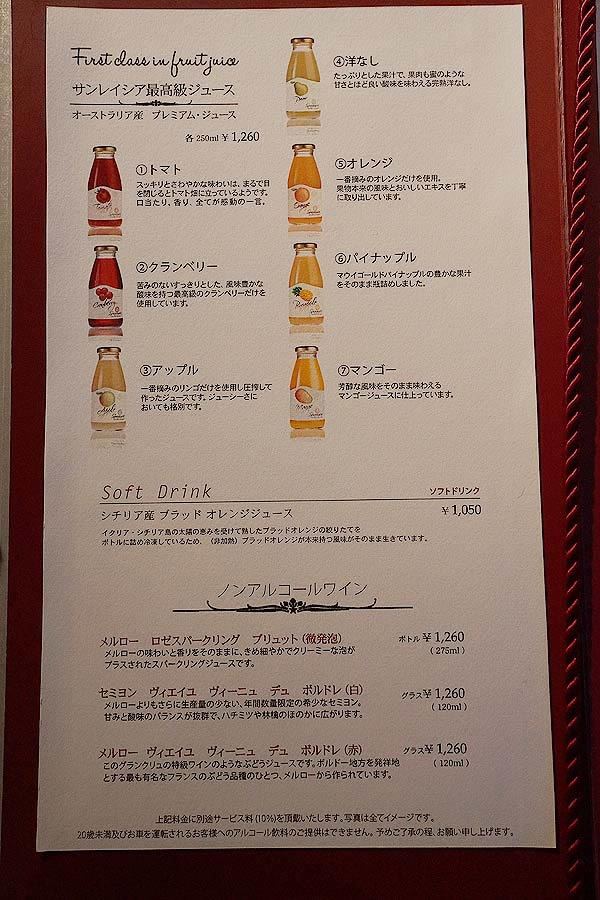 First class in fruit juice
サンレイシア最高級ジュース
オーストラリア産 プレミアム・ジュース
各 250ml ¥ 1,260
①トマト
スッキリとさわやかな味わいは、まるで目
を閉じるとトマト畑に立っているようです。
口当たり、香り、全てが感動の一言。
②クランベリー
苦みのないすっきりとした、風味豊かな
酸味を持つ最高級のクランベリーだけを
使用しています。
③アップル
一番摘みのリンゴだけを使用し圧搾して
作ったジュースです。ジューシーさに
おいても格別です。
④洋なし
たっぷりとした果汁で、果肉も蜜のような
甘さとほど良い酸味を味わえる完熟洋なし。
⑤オレンジ
一番摘みのオレンジだけを使用。
果物本来の風味とおいしいエキスを丁寧
に取り出しています。
⑥パイナップル
マウイゴールドパイナップルの豊かな果汁
をそのまま瓶詰めしました。
⑦マンゴー
芳醇な風味をそのまま味わえる
マンゴージュースに仕上っています。
Soft Drink
ソフトドリンク
シチリア産 ブラッド オレンジジュース
¥ 1,050
イタリア・シチリア島の太陽の恵みを受けて熟したブラッドオレンジの絞りたてを
ボトルに詰め冷凍しているため、（非加熱）ブラッドオレンジが本来持つ風味がそのまま生きています。
ノンアルコールワイン
メルロー ロゼスパークリング ブリュット（微発泡）
ボトル ¥ 1,260
メルローの味わいと香りをそのままに、きめ細やかでクリーミーな泡が
( 275ml )
プラスされたスパークリングジュースです。
セミヨン ヴィエイユ ヴィーニュ デュ ボルドレ（白）
グラス ¥ 1,260
メルローよりもさらに生産量の少ない、年間数量限定の希少なセミヨン。
( 120ml )
甘みと酸味のバランスが抜群で、ハチミツや林檎のほのかに広がります。
メルロー ヴィエイユ ヴィーニュ デュ ボルドレ（赤）
グラス ¥ 1,260
このグランクリュの特級ワインのようなぶどうジュースです。ボルドー地方を発祥地
( 120ml )
とする最も有名なフランスのぶどう品種のひとつ、メルローから作られています。
上記料金に別途サービス料(10%)を頂戴いたします。写真は全てイメージです。
20歳未満及びお車を運転されるお客様へのアルコール飲料のご提供はできません。予めご了承の程、お願い申し上げます。